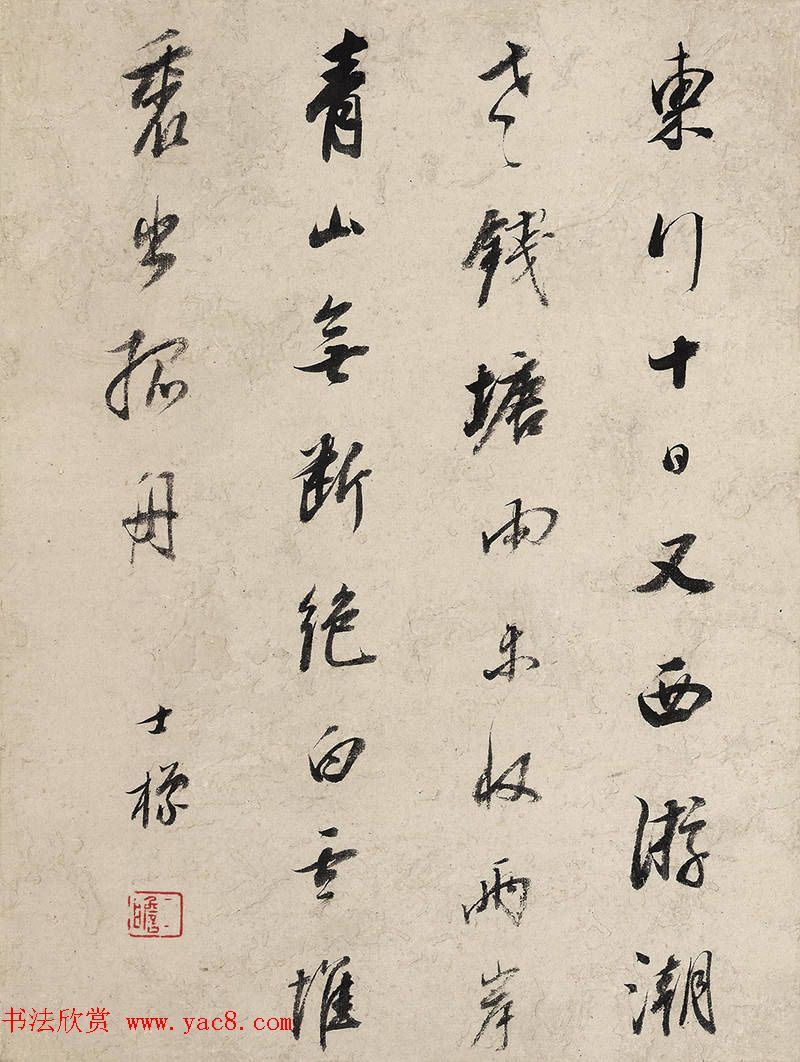 東行十日又西游潮
錢塘雨未收兩岸
青山無斷絕白雲堆
裏出孤舟
士標
二瞻
书法欣赏 www.yac8.com